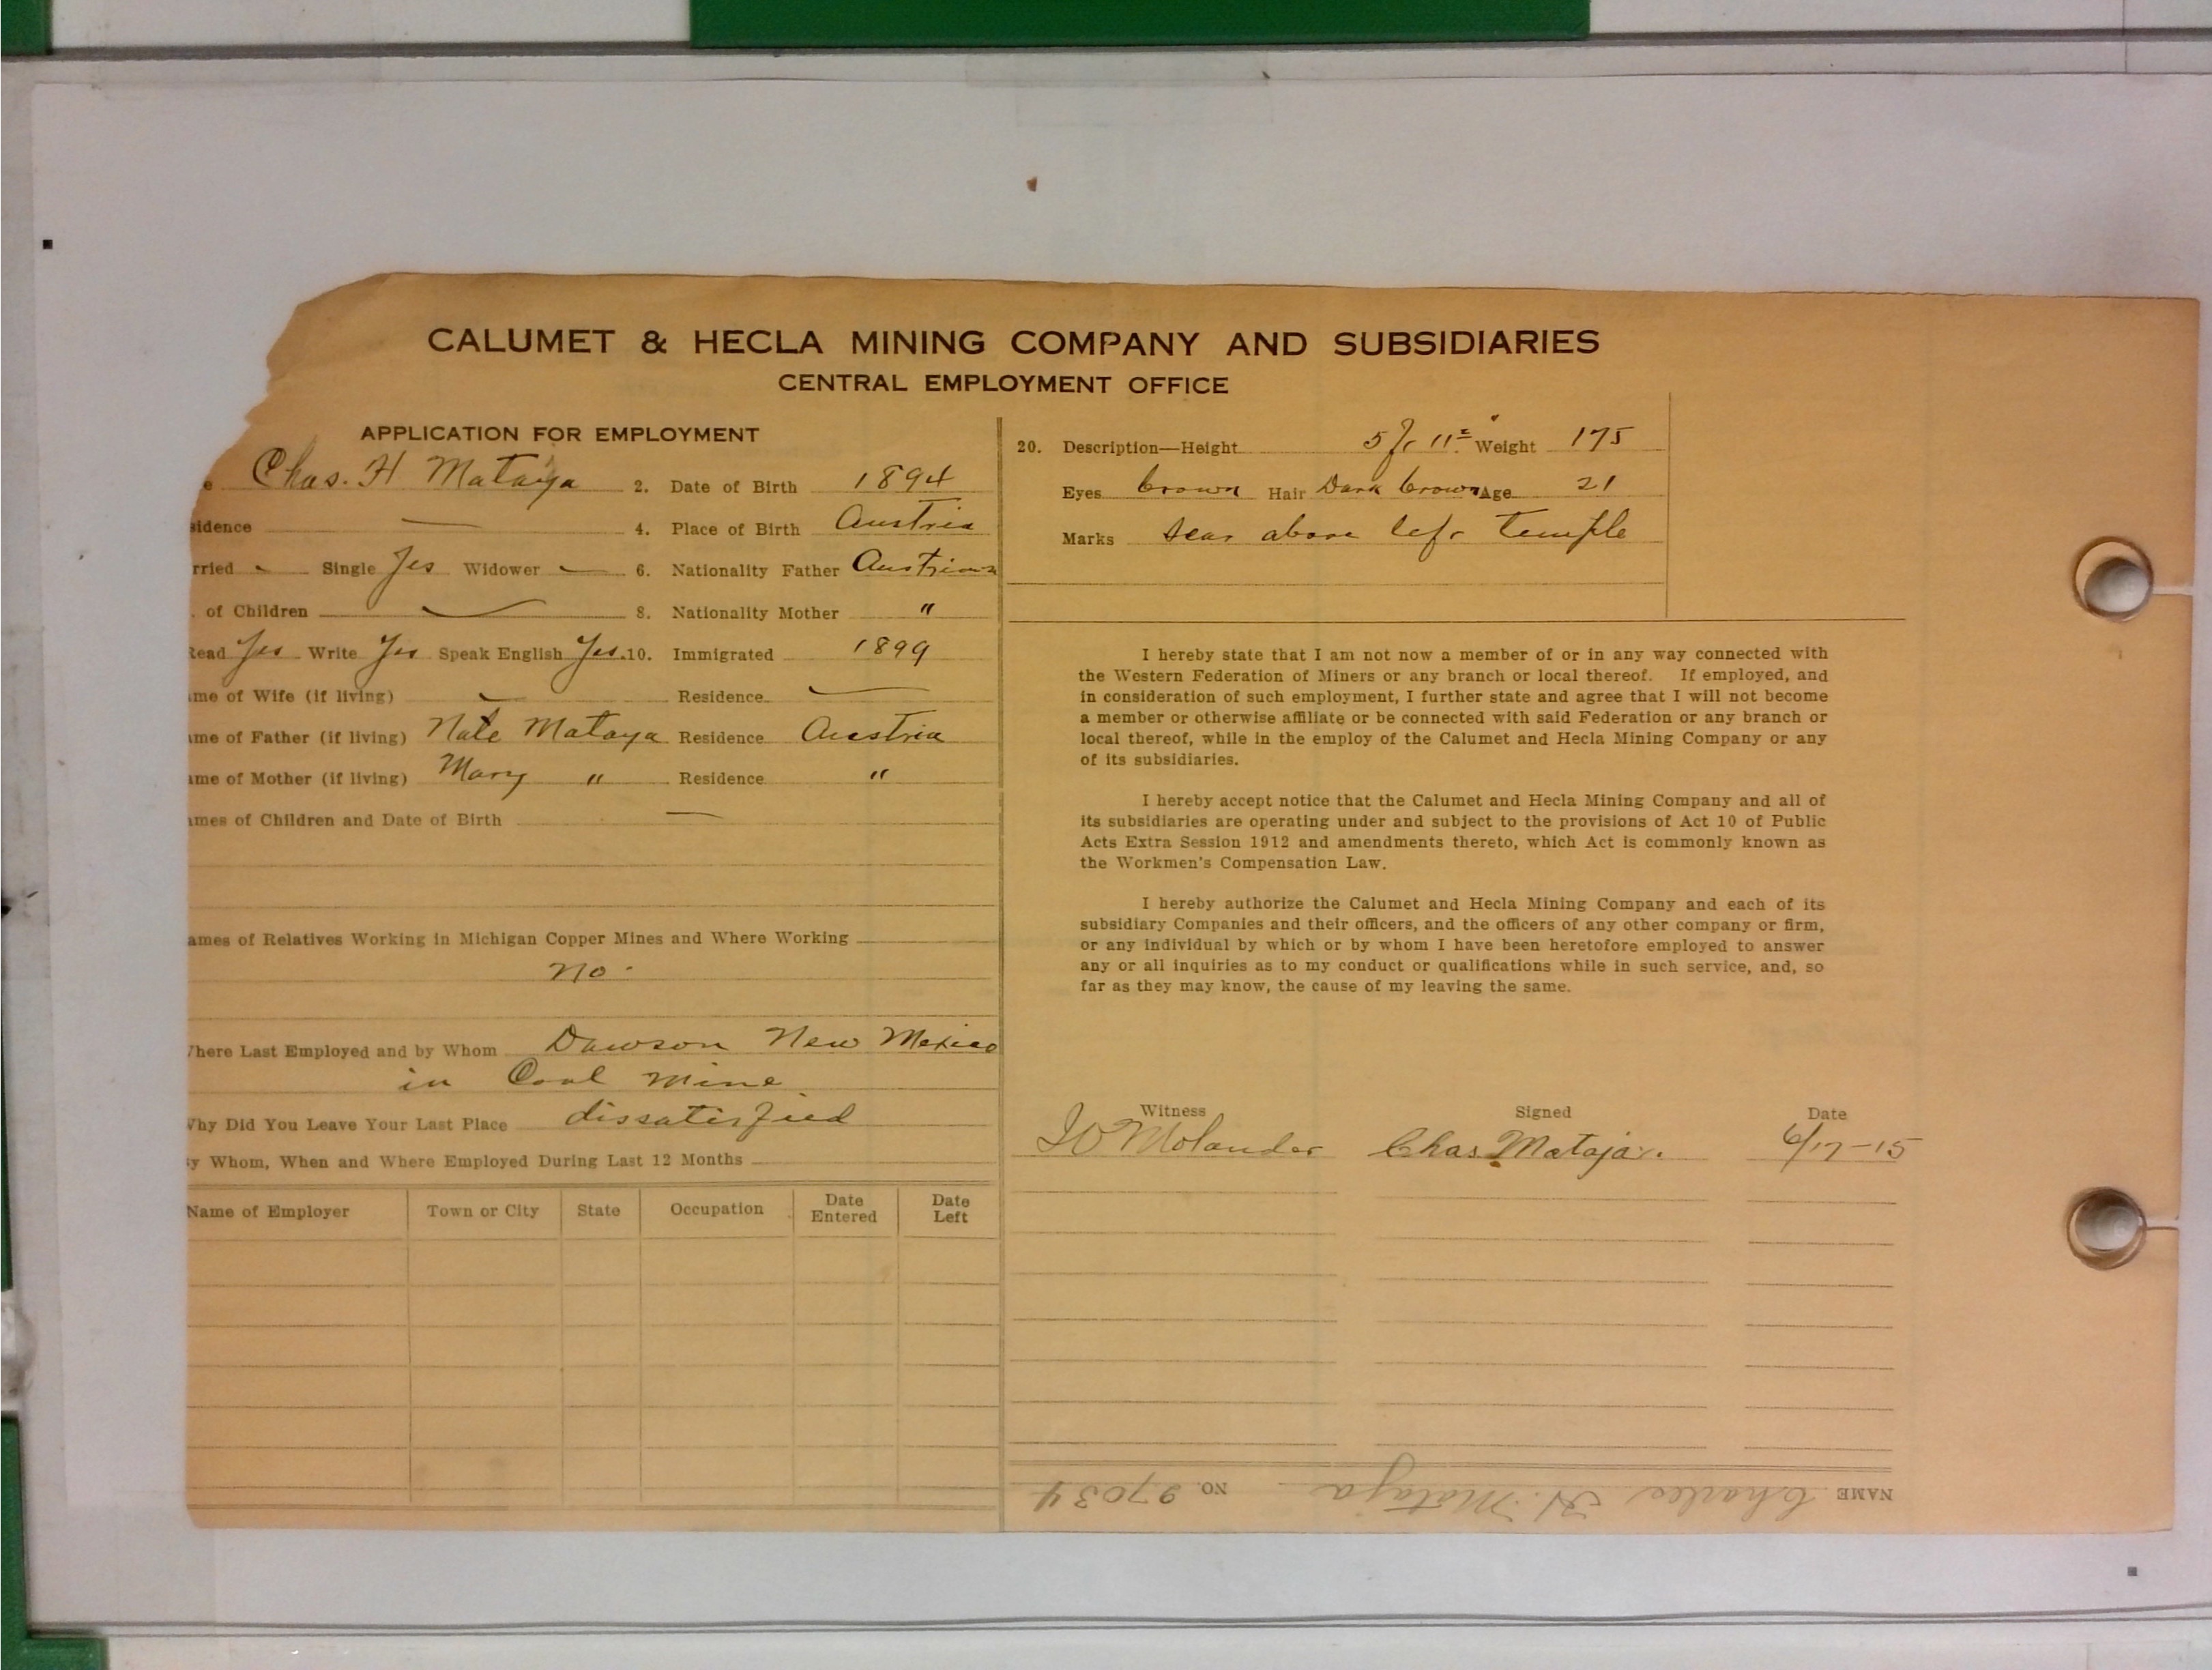 CALUMET & HECLA MINING COMPANY AND SUBSIDIARIES
CENTRAL EMPLOYMENT OFFICE
APPLICATION FOR EMPLOYMENT
e Chas. H Mataya 2. Date of Birth 1894
sidence — 4. Place of Birth Austria
rried - Single Yes Widower — 6. Nationality Father Austrian
. of Children — 8. Nationality Mother "
Read Yes Write Yes Speak English Yes. 10. Immigrated 1899
me of Wife (if living) — Residence —
me of Father (if living) Nate Mataya Residence Austria
ame of Mother (if living) Mary " Residence "
ames of Children and Date of Birth —
ames of Relatives Working in Michigan Copper Mines and Where Working
No.
Where Last Employed and by Whom Dawson New Mexico
in Coal Mine
Why Did You Leave Your Last Place dissatisfied
y Whom, When and Where Employed During Last 12 Months
Name of Employer Town or City State Occupation Date Entered Date Left
20. Description—Height 5 ft 11" Weight 175
Eyes brown Hair Dark brown Age 21
Marks scar above left temple
I hereby state that I am not now a member of or in any way connected with
the Western Federation of Miners or any branch or local thereof. If employed, and
in consideration of such employment, I further state and agree that I will not become
a member or otherwise affiliate or be connected with said Federation or any branch or
local thereof, while in the employ of the Calumet and Hecla Mining Company or any
of its subsidiaries.
I hereby accept notice that the Calumet and Hecla Mining Company and all of
its subsidiaries are operating under and subject to the provisions of Act 10 of Public
Acts Extra Session 1912 and amendments thereto, which Act is commonly known as
the Workmen's Compensation Law.
I hereby authorize the Calumet and Hecla Mining Company and each of its
subsidiary Companies and their officers, and the officers of any other company or firm,
or any individual by which or by whom I have been heretofore employed to answer
any or all inquiries as to my conduct or qualifications while in such service, and, so
far as they may know, the cause of my leaving the same.
Witness Signed Date
Molander Chas. Mataja. 6/17-15
NAME Charles H. Mataja NO. 27034